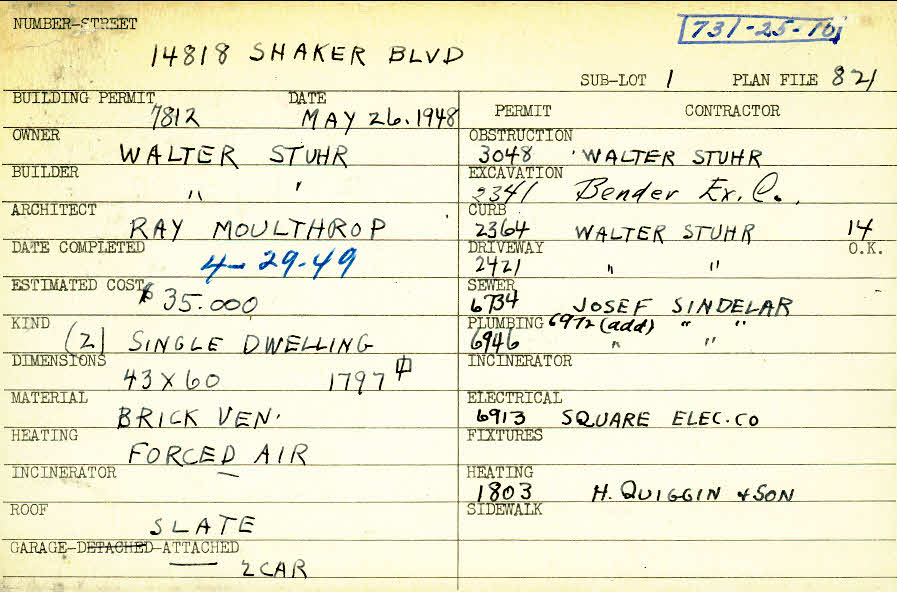 NUMBER-STREET
731-25-10
14818 SHAKER BLVD
SUB-LOT 1 PLAN FILE 821
BUILDING PERMIT DATE
7812 MAY 26.1948
PERMIT CONTRACTOR
OWNER
WALTER STUHR
OBSTRUCTION
3048 WALTER STUHR
BUILDER
" "
EXCAVATION
2341 Bender Ex. Co.
ARCHITECT
RAY MOULTHROP
CURB
2364 WALTER STUHR 14
DATE COMPLETED
4-29-49
DRIVEWAY O.K.
2421 " "
ESTIMATED COST
$35.000
SEWER
6734 JOSEF SINDELAR
KIND
(2) SINGLE DWELLING
PLUMBING 6972 (add) " "
6946 " "
DIMENSIONS
43 X 60 1797
INCINERATOR
MATERIAL
BRICK VEN.
ELECTRICAL
6913 SQUARE ELEC.CO
HEATING
FORCED AIR
FIXTURES
INCINERATOR
HEATING
1803 H. QUIGGIN & SON
ROOF
SLATE
SIDEWALK
GARAGE-DETACHED-ATTACHED
2 CAR